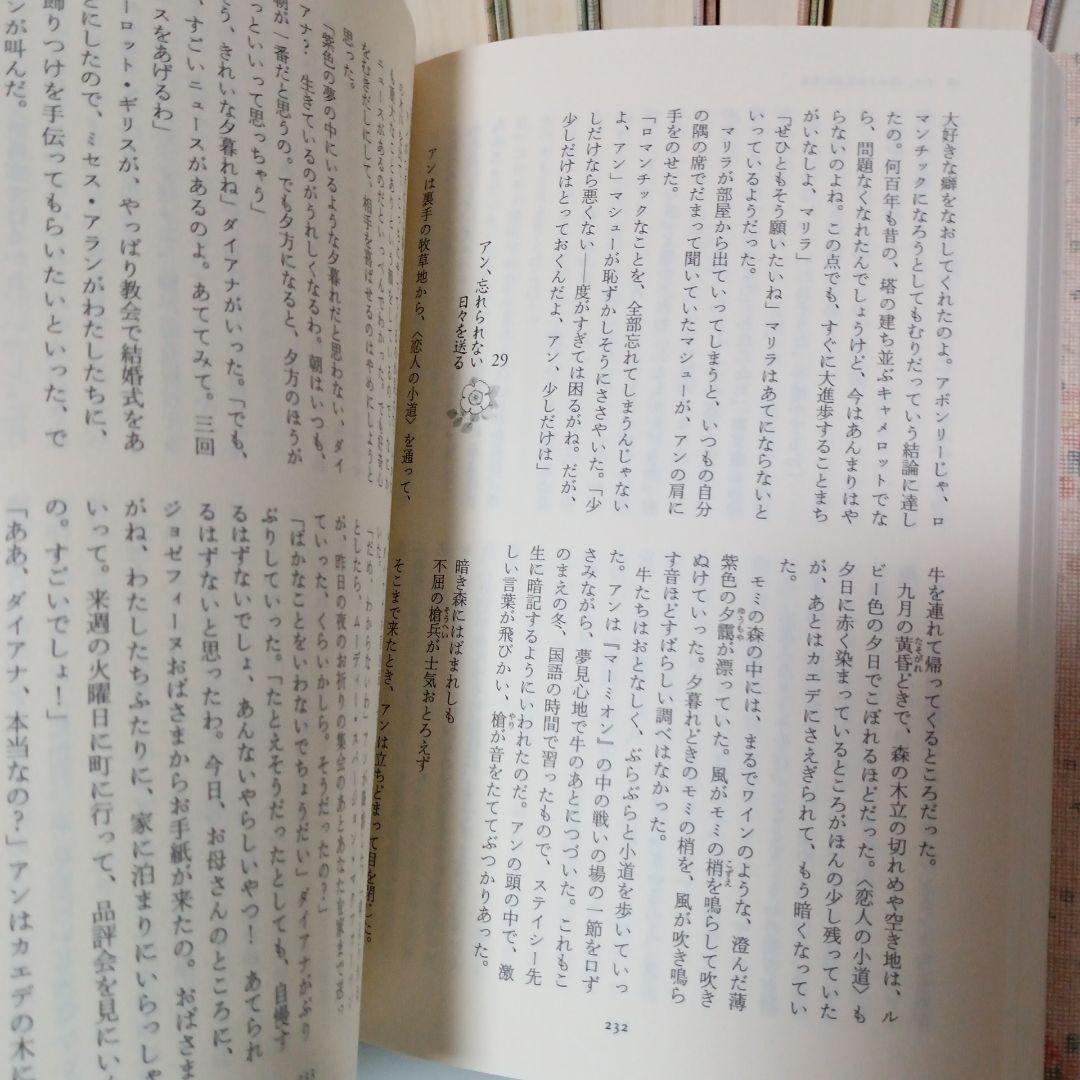 大好きな癖をなおしてくれたのよ。アボンリーじゃ、ロ
マンチックになろうとしてもむりだっていう結論に達し
たの。何百年も昔の、塔の建ち並ぶキャメロットでな
ら、問題なくなれたんでしょうけど、今はあんまりはや
らないのよね。この点でも、すぐに大進歩することまち
がいなしよ、マリラ」
「ぜひともそう願いたいね」マリラはあてにならないと
いっているようだった。
マリラが部屋から出ていってしまうと、いつもの自分
の隅の席でだまって聞いていたマシューが、アンの肩に
手をのせた。
「ロマンチックなことを、全部忘れてしまうんじゃない
よ、アン」マシューが恥ずかしそうにささやいた。「少
しだけなら悪くない――度がすぎては困るがね。だが、
少しだけはとっておくんだよ、アン、少しだけは」
29
アン、忘れられない
日々を送る
アンは裏手の牧草地から、〈恋人の小道〉を通って、
牛を連れて帰ってくるところだった。
九月の黄昏どきで、森の木立の切れめや空き地は、ル
ビー色の夕日でこぼれるほどだった。〈恋人の小道〉も
夕日に赤く染まっているところがほんの少し残っていた
が、あとはカエデにさえぎられて、もう暗くなってい
た。
モミの森の中には、まるでワインのような、澄んだ薄
紫色の夕靄が漂っていた。風がモミの梢を鳴らして吹き
ぬけていった。夕暮れどきのモミの梢を、風が吹き鳴ら
す音ほどすばらしい調べはなかった。
牛たちはおとなしく、ぶらぶらと小道を歩いていっ
た。アンは『マーミオン』の中の戦いの場の一節を口ず
さみながら、夢見心地で牛のあとにつづいた。これもこ
のまえの冬、国語の時間で習ったもので、ステイシー先
生に暗記するようにいわれたのだ。アンの頭の中で、激
しい言葉が飛びかい、槍が音をたててぶつかりあった。
暗き森にはばまれしも
不屈の槍兵が士気おとろえず
そこまで来たとき、アンは立ちどまって目を閉じた。
232
ニュースがあるのだといっ
をむきだしにして、相手を喜ばせるのはやめにしようと
思った。
「紫色の夢の中にいるような夕暮れだと思わない、ダイ
アナ？　生きているのがうれしくなるわ。朝はいつも、
朝が一番だと思うの。でも夕方になると、夕方のほうが
っといいって思っちゃう」
う、きれいな夕暮れね」ダイアナがいった。「でも、
、すごいニュースがあるのよ。あててみて。三回
スをあげるわ」
ーロット・ギリスが、やっぱり教会で結婚式をあ
とにしたので、ミセス・アランがわたしたちに、
飾りつけを手伝ってもらいたいといった、で
ンが叫んだ。
「だめ、わからないわ
としたら、ムーディー・スパージョン・
が、昨日の夜のお祈りの集会のあとあなたを家まで送っ
ていった、くらいかしら。そうだったの？」
「ばかなことをいわないでちょうだい」ダイアナがぷり
ぷりしていった。「たとえそうだったとしても、自慢す
るはずないでしょ、あんないやらしいやつ！　あてられ
るはずないと思ったわ。今日、お母さんのところに、
ジョゼフィィヌおばさまからお手紙が来たの。おばさま
がね、わたしたちふたりに、家に泊まりにいらっしゃ
いって。来週の火曜日に町に行って、品評会を見にい
の。すごいでしょ！」
「ああ、ダイアナ、本当なの？」アンはカエデの木に